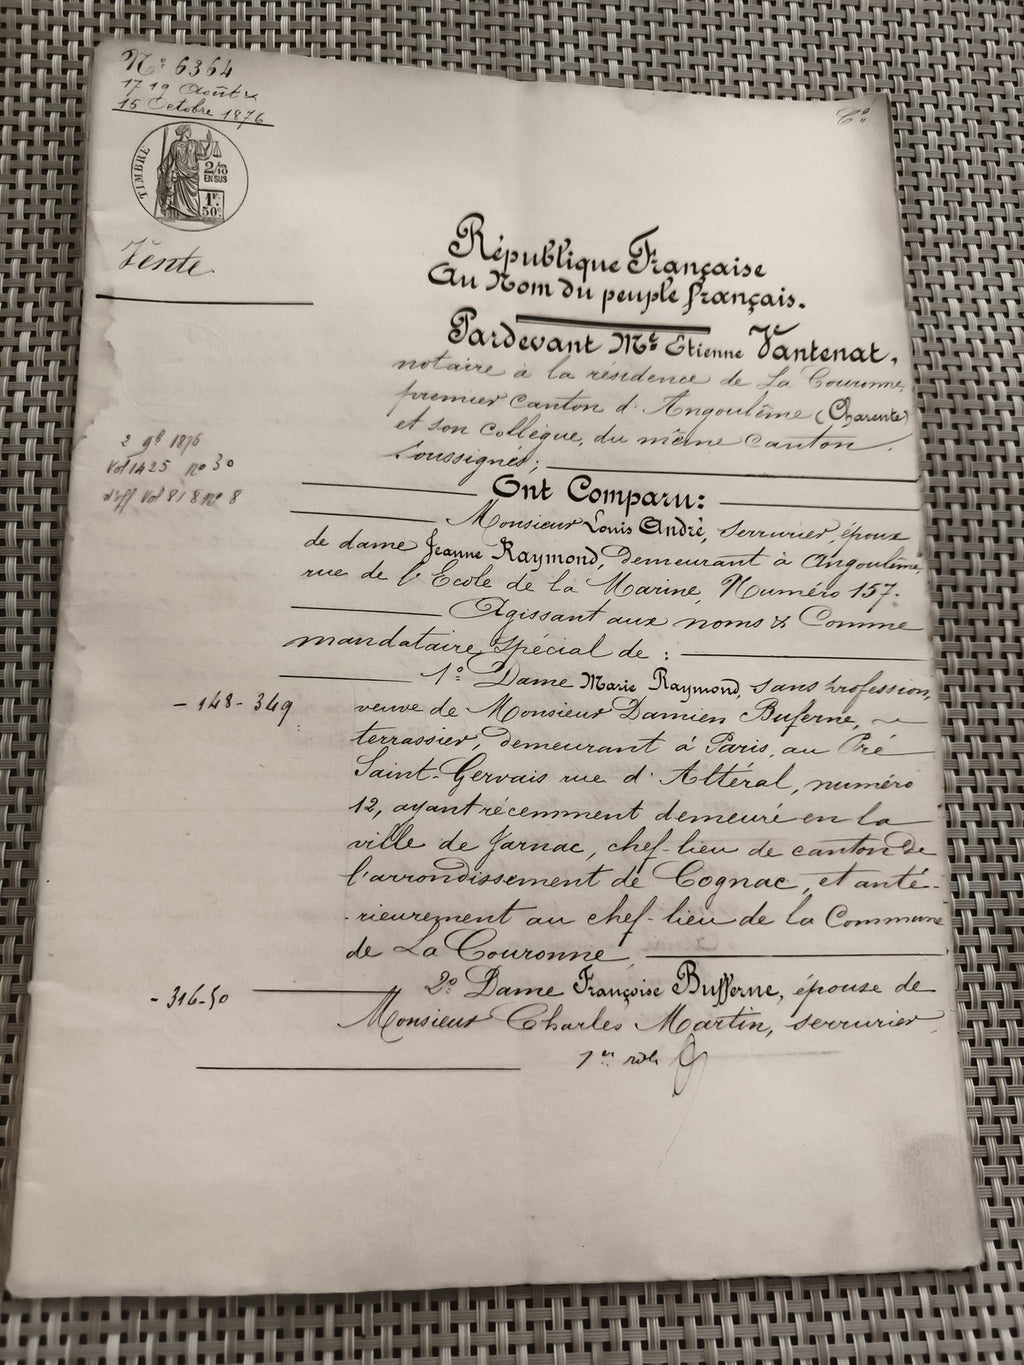 Nº 6364
17 19 Août &
15 Octobre 1876
TIMBRE
2/10
EN SUS
1F.
50c.
Vente.
Cº
République Française
Au Nom du peuple français.
Pardevant Me Etienne Vantenat,
notaire à la résidence de La Couronne,
premier canton d'Angoulême (Charente)
et son collègue, du même canton,
soussignés;
2 9b 1876
Vol 1425 nº 30
Vol 818 nº 8
Ont Comparu:
Monsieur Louis André, serrurier, époux
de dame Jeanne Raymond, demeurant à Angoulême,
rue de l'Ecole de la Marine, Numéro 157.
Agissant aux noms & Comme
mandataire spécial de :
1º Dame Marie Raymond, sans profession,
- 148 - 349
veuve de Monsieur Damien Buferne,
terrassier, demeurant à Paris, au Pré
Saint-Gervais rue d'Altéral, numéro
12, ayant récemment demeuré en la
ville de Jarnac, chef-lieu de canton de
l'arrondissement de Cognac, et anté-
-rieurement au chef-lieu de la Commune
de La Couronne
2º Dame Françoise Bufferne, épouse de
- 316-50
Monsieur Charles Martin, serrurier,
1er rôle